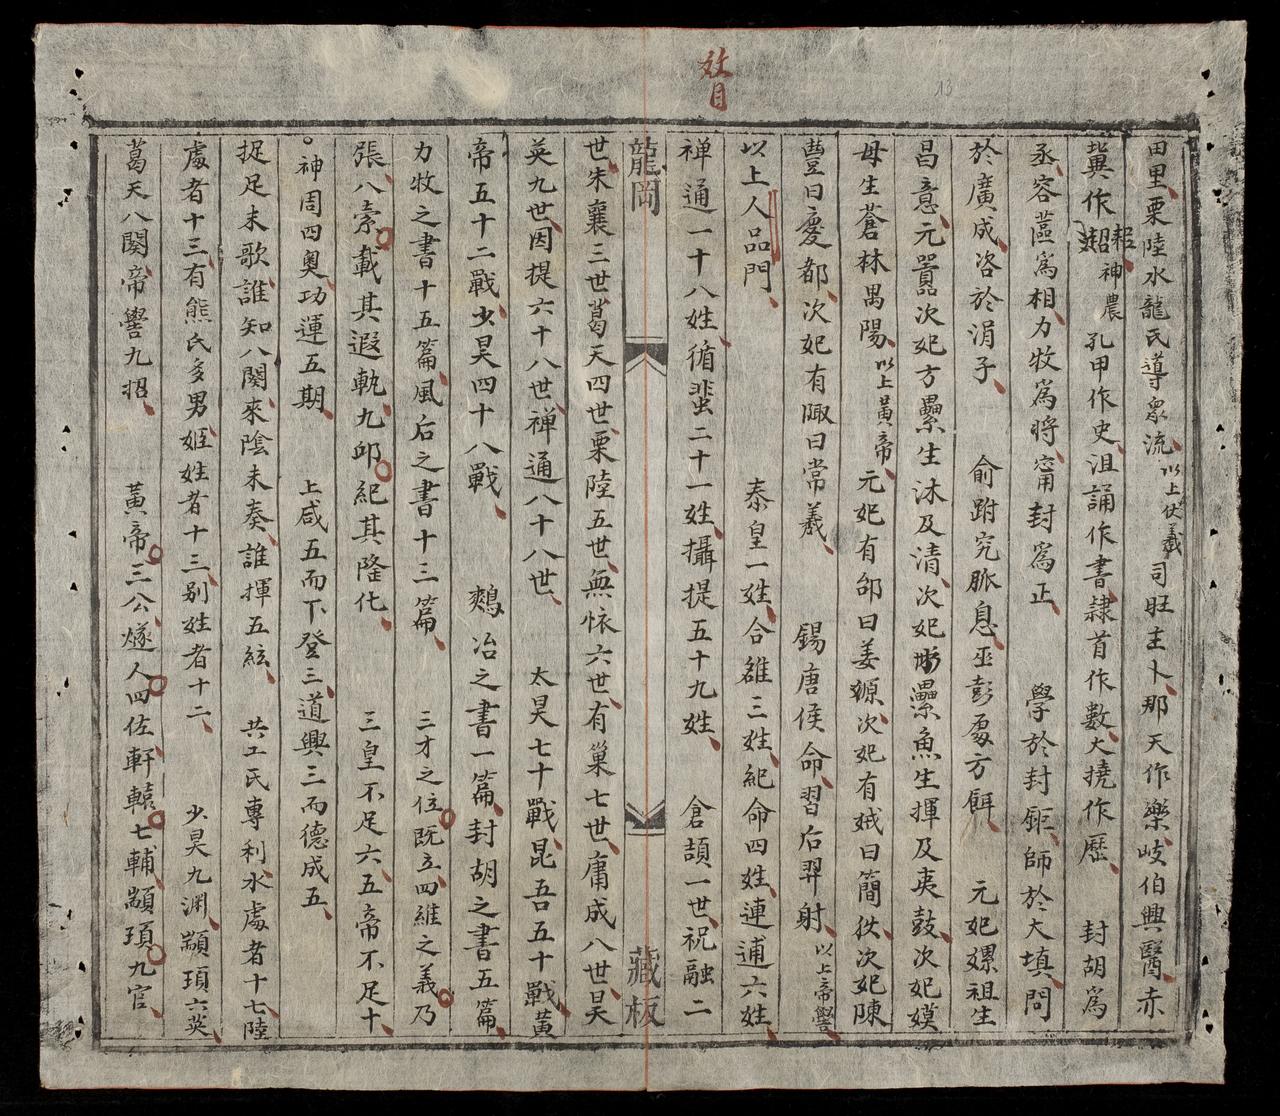 敄目
13
田里、栗陸水龍氏導衆流、以上伏羲 司旺主卜、那天作樂、岐伯興醫、赤
冀作耜、神農 孔甲作史、沮誦作書、隷首作數、大撓作歷、 封胡爲
丞、容蓲爲相、力牧爲將、甯封爲正、 學於封鉅、師於大填、問
於廣成、咨於涓子、 俞跗究脈息、巫彭處方餌、 元妃嫘祖生
昌意、元囂、次妃方纍生沐及清、次妃彤魚生揮及夷鼓、次妃嫫
母生蒼林禺陽、以上黃帝、元妃有邰曰姜嫄、次妃有娀曰簡狄、次妃陳
豐曰慶都、次妃有陬曰常羲、 錫唐侯命、習后羿射、以上帝嚳
以上人品門、 泰皇一姓、合雒三姓、紀命四姓、連逋六姓、
禅通一十八姓、循蜚二十一姓、攝提五十九姓、 倉頡一世、祝融二
籠岡 藏板
世、朱襄三世、葛天四世、栗陸五世、無懷六世、有巢七世、庸成八世、昊
英九世、因提六十八世、禅通八十八世、 太昊七十戰、昆吾五十戰、黃
帝五十二戰、少昊四十八戰、 鶈冶之書一篇、封胡之書五篇、
力牧之書十五篇、風后之書十三篇、 三才之位既立、四維之義乃
張、八索載其遐軌、九邱紀其隆化、 三皇不足六、五帝不足十、
神周四奧、功運五期、 上咸五而下登三、道興三而德成五、
捉足未歌、誰知八闋、來陰未奏、誰揮五絃、 共工氏專利、水處者十七、陸
處者十三、有熊氏多男、姬姓者十三、别姓者十二、 少昊九淵、顓頊六英、
葛天八闋、帝嚳九招、 黃帝三公、燧人四佐、軒轅七輔、顓頊九官、